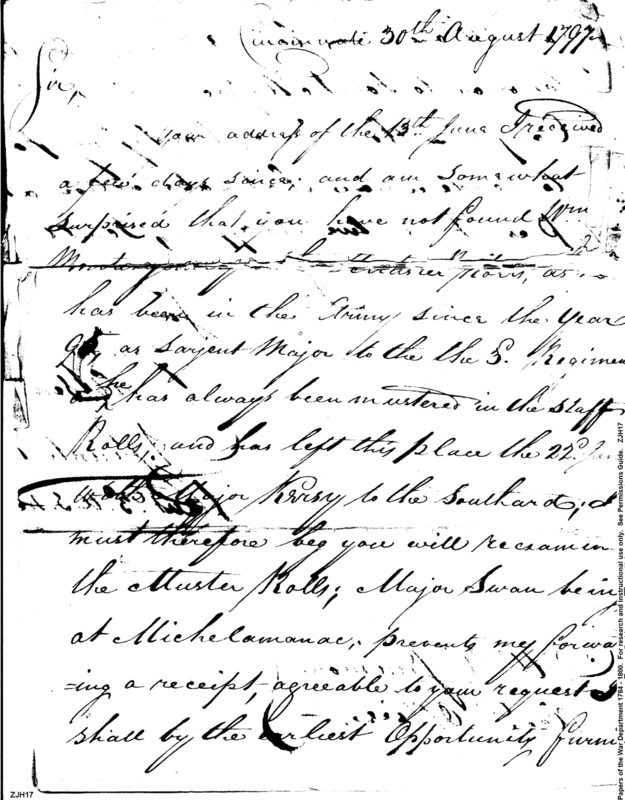 Cincinnati 30th August 1797
Sir,
Your address of the 13th June I received
a few days since, and am somewhat
surprised that you have not found Wm
as
has been in the Army since the Year
as Sarjent Major to the the 3. Regimen
he has always been mustered in the staff
Rolls, and has left this place the 22d
Major Kersey to the Southard; I
must therefore beg you will reexamin
the Muster Rolls; Major Swan bein
at Michelamanac, prevents my forwa
=ing a receipt, agreeable to your request I
shall by the earliest Opportunity furni
ZJH17
Papers of the War Department 1784 - 1800. For research and instructional use only. See Permissions Guide. ZJH17